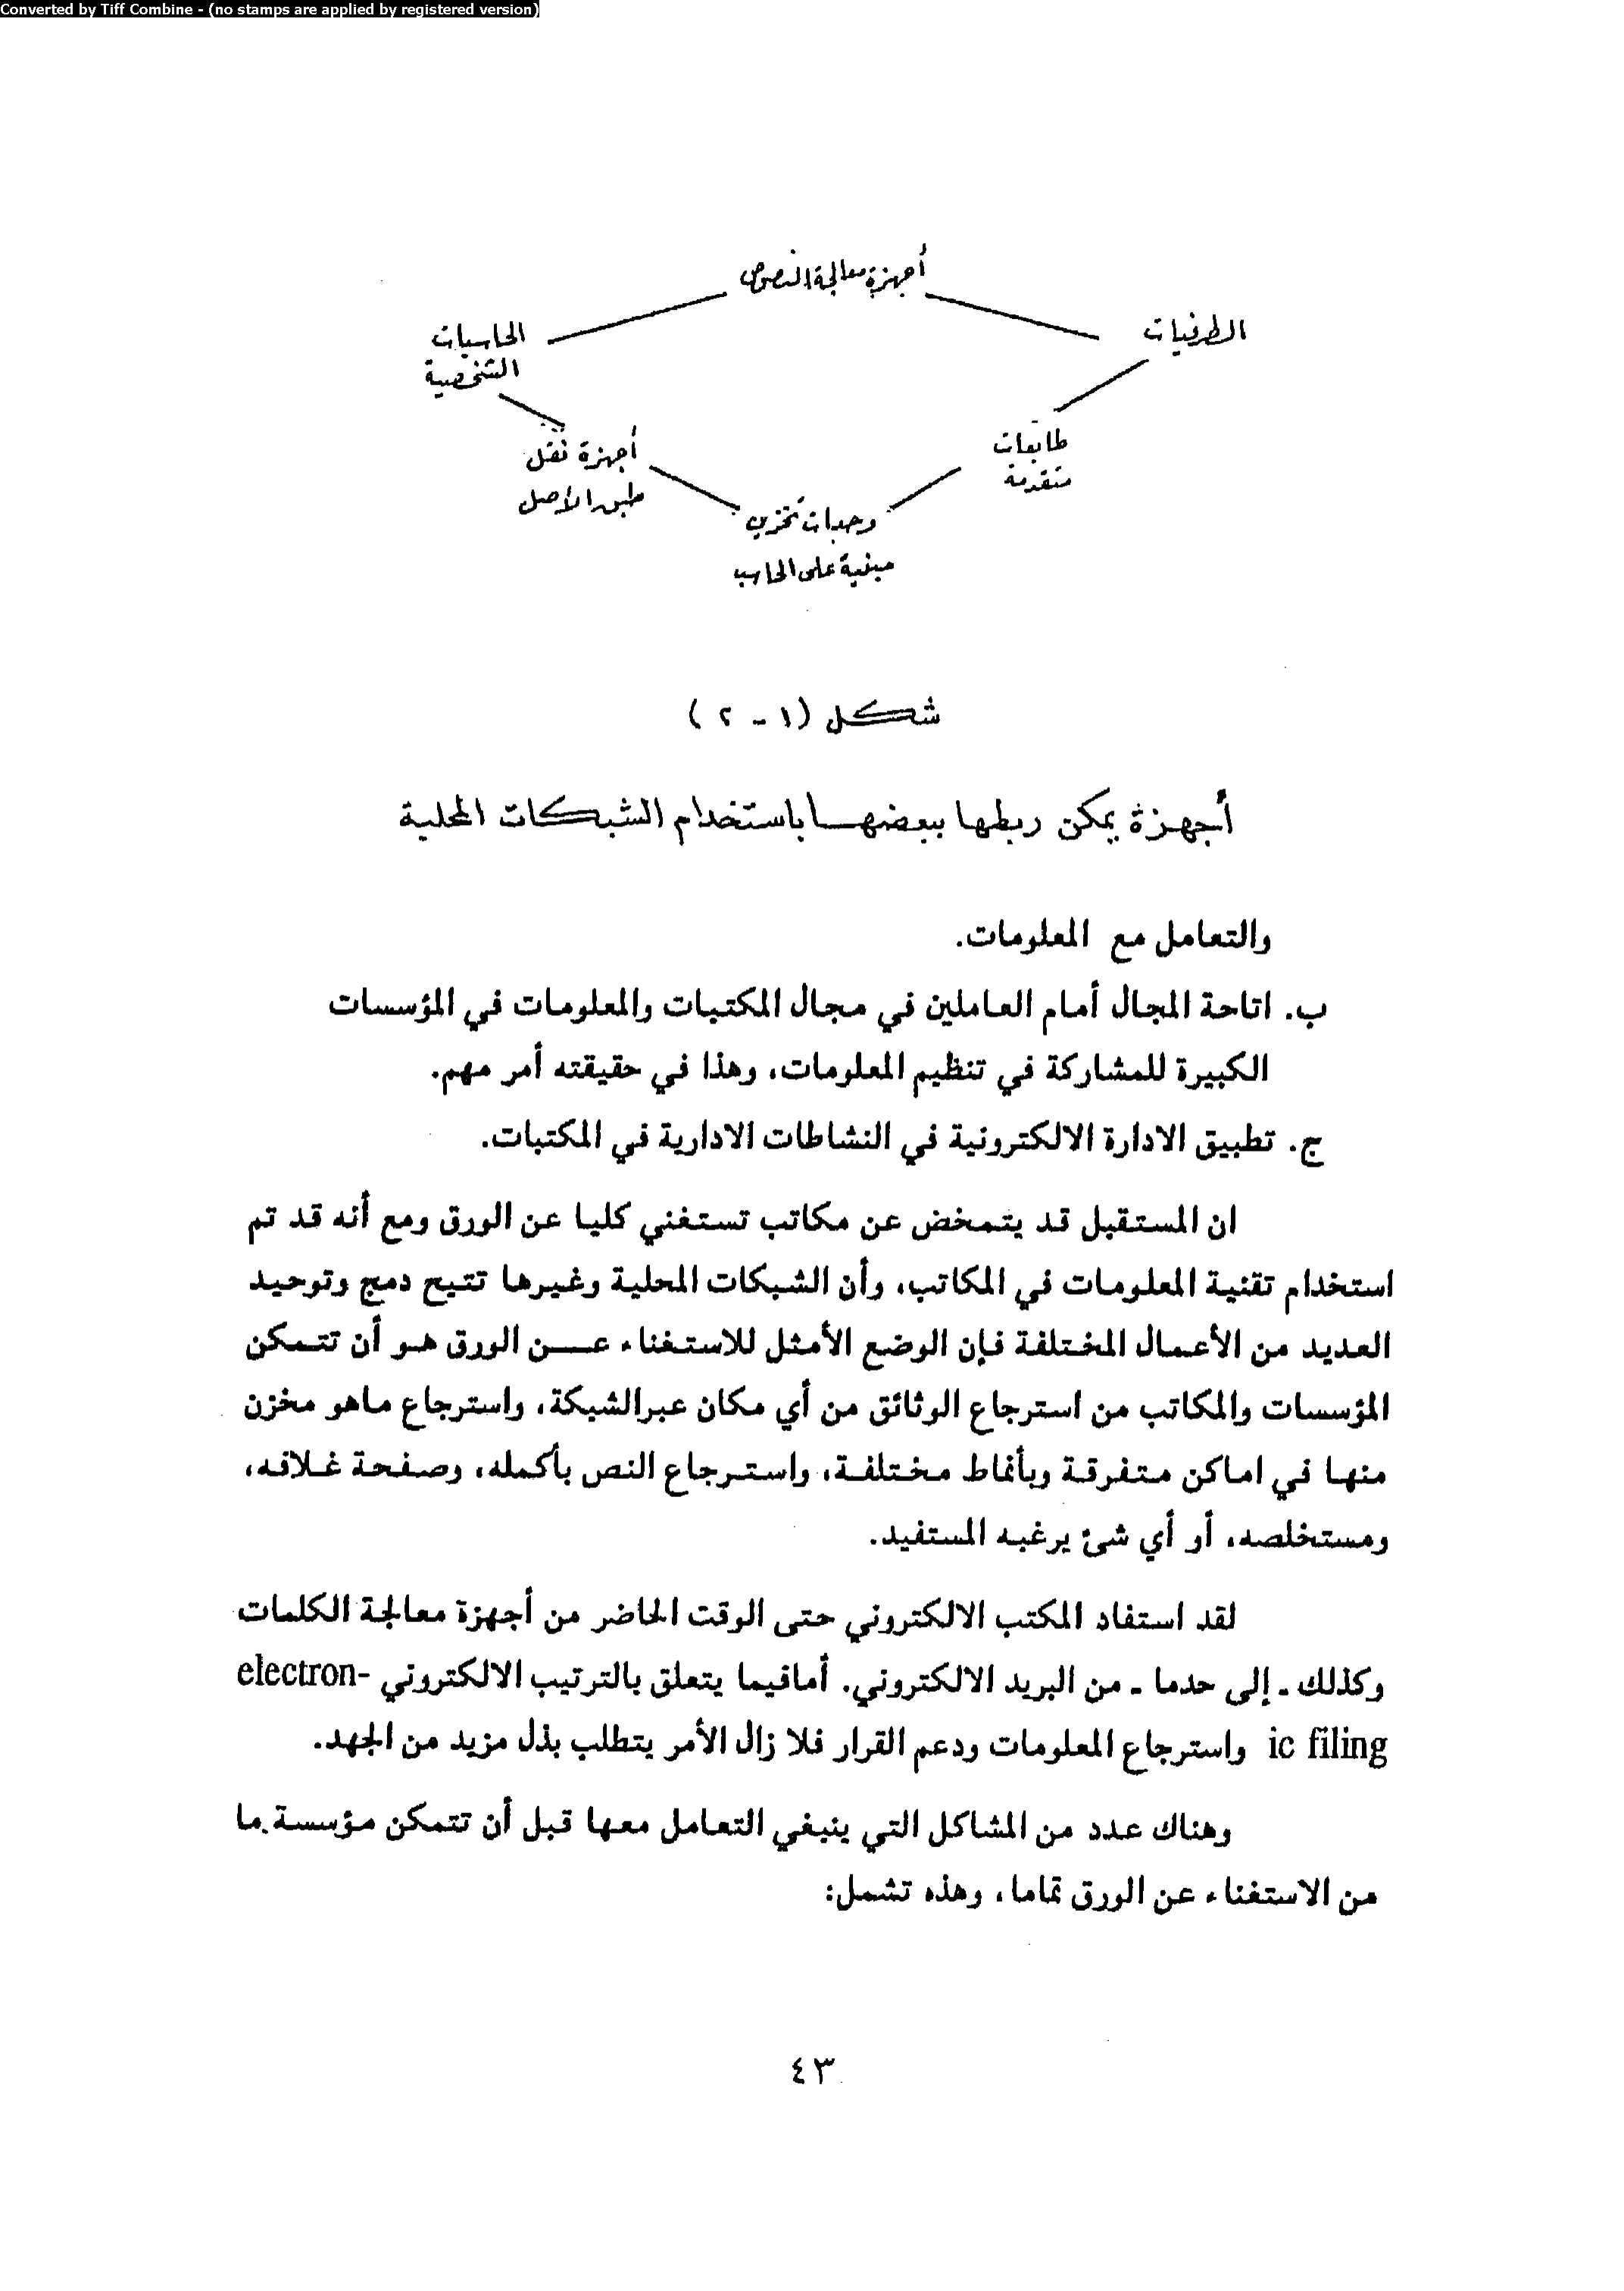 Converted by Tiff Combine - (no stamps are applied by registered version)
أجهزة معالجة النصوص
الطرفيات
الحاسبات
الشخصية
طابعات
متقدمة
أجهزة نقل
طبق الأصل
وحدات تخزين
مبنية على الحاسب
شكل (١ - ٢)
أجهزة يمكن ربطها ببعضها باستخدام الشبكات المحلية
والتعامل مع المعلومات.
ب. اتاحة المجال أمام العاملين في مجال المكتبات والمعلومات في المؤسسات
الكبيرة للمشاركة في تنظيم المعلومات، وهذا في حقيقته أمر مهم.
ج. تطبيق الادارة الالكترونية في النشاطات الادارية في المكتبات.
ان المستقبل قد يتمخض عن مكاتب تستغني كليا عن الورق ومع أنه قد تم
استخدام تقنية المعلومات في المكاتب، وأن الشبكات المحلية وغيرها تتيح دمج وتوحيد
العديد من الأعمال المختلفة فإن الوضع الأمثل للاستغناء عن الورق هو أن تتمكن
المؤسسات والمكاتب من استرجاع الوثائق من أي مكان عبرالشبكة، واسترجاع ماهو مخزن
منها في اماكن متفرقة وبأنماط مختلفة، واسترجاع النص بأكمله، وصفحة غلافه،
ومستخلصه، أو أي شئ يرغبه المستفيد.
لقد استفاد المكتب الالكتروني حتى الوقت الحاضر من أجهزة معالجة الكلمات
وكذلك - إلى حدما - من البريد الالكتروني. أمافيما يتعلق بالترتيب الالكتروني electron-
ic filing واسترجاع المعلومات ودعم القرار فلا زال الأمر يتطلب بذل مزيد من الجهد.
وهناك عدد من المشاكل التي ينبغي التعامل معها قبل أن تتمكن مؤسسة ما
من الاستغناء عن الورق تماما، وهذه تشمل:
٤٣